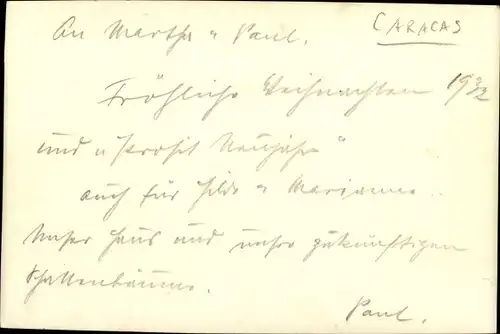 An Martha u Paul.
CARACAS
Fröhliche Weihnachten 1932
und "Prosit Neujahr"
auch für Hilde u Marianne.
Unser Haus und unsre zukünftigen
Schattenbäume.
Paul.